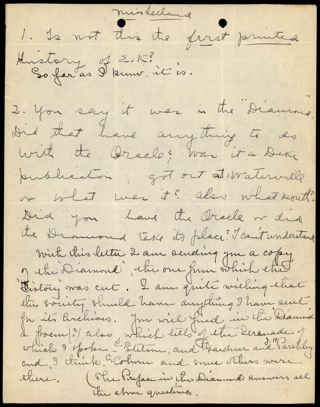 1. Is not this the first printed
History of Σ.K?
So far as I know, it is.
2. You say it was in the "Diamond".
Did that have anything to do
with the Oracle? Was it a Deke
publication, got out at Waterville
or what was it? Also what month?
Did you have the Oracle or did
the Diamond take its place? I can't understand
With this letter I am sending you a copy
of the "Diamond", the one from which this
History was cut. I am quite willing that
the society should have anything I have sent
for its Archives. You will find in the Diamond
a poem, also, which tells of the serenade of
which I spoke. Stetson, and Gardner and Parshley
and, I think Coburn and some others were
there. (The Preface in the Diamond answers all
the above questions.